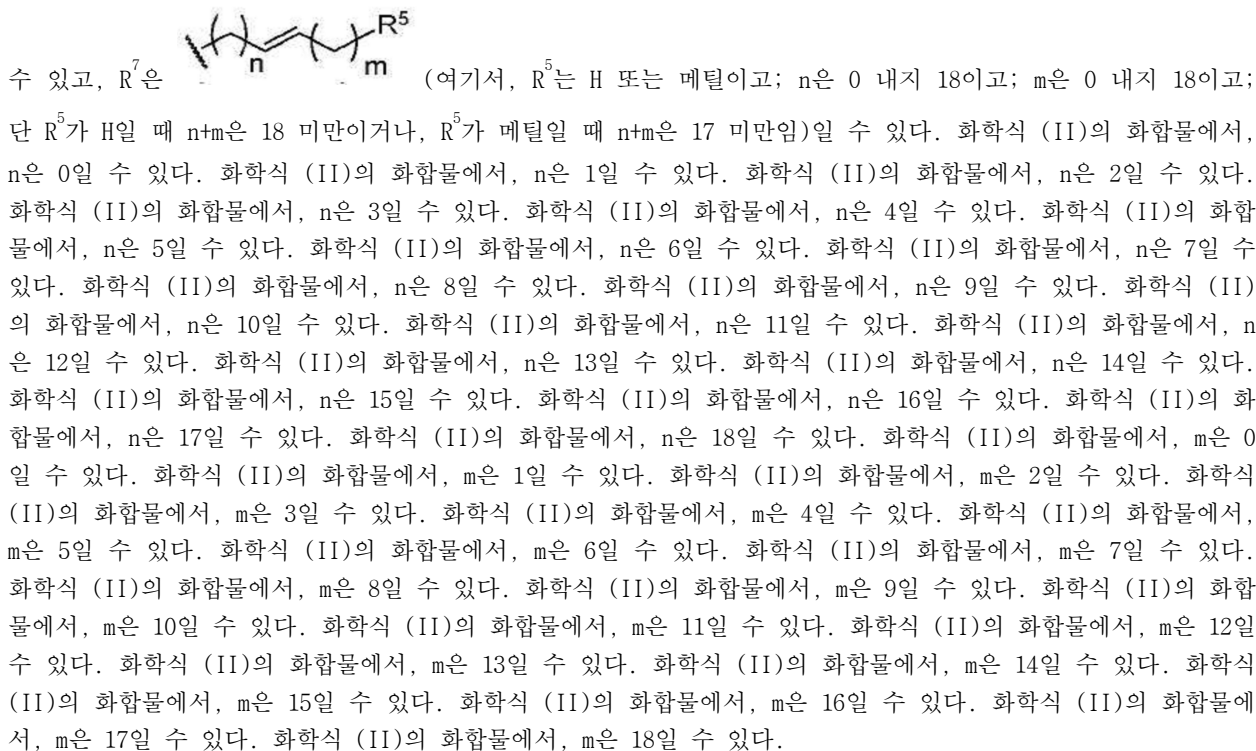 R⁵
n m
수 있고, R⁷은 (여기서, R⁵는 H 또는 메틸이고; n은 0 내지 18이고; m은 0 내지 18이고;
단 R⁵가 H일 때 n+m은 18 미만이거나, R⁵가 메틸일 때 n+m은 17 미만임)일 수 있다. 화학식 (II)의 화합물에서,
n은 0일 수 있다. 화학식 (II)의 화합물에서, n은 1일 수 있다. 화학식 (II)의 화합물에서, n은 2일 수 있다.
화학식 (II)의 화합물에서, n은 3일 수 있다. 화학식 (II)의 화합물에서, n은 4일 수 있다. 화학식 (II)의 화합
물에서, n은 5일 수 있다. 화학식 (II)의 화합물에서, n은 6일 수 있다. 화학식 (II)의 화합물에서, n은 7일 수
있다. 화학식 (II)의 화합물에서, n은 8일 수 있다. 화학식 (II)의 화합물에서, n은 9일 수 있다. 화학식 (II)
의 화합물에서, n은 10일 수 있다. 화학식 (II)의 화합물에서, n은 11일 수 있다. 화학식 (II)의 화합물에서, n
은 12일 수 있다. 화학식 (II)의 화합물에서, n은 13일 수 있다. 화학식 (II)의 화합물에서, n은 14일 수 있다.
화학식 (II)의 화합물에서, n은 15일 수 있다. 화학식 (II)의 화합물에서, n은 16일 수 있다. 화학식 (II)의 화
합물에서, n은 17일 수 있다. 화학식 (II)의 화합물에서, n은 18일 수 있다. 화학식 (II)의 화합물에서, m은 0
일 수 있다. 화학식 (II)의 화합물에서, m은 1일 수 있다. 화학식 (II)의 화합물에서, m은 2일 수 있다. 화학식
(II)의 화합물에서, m은 3일 수 있다. 화학식 (II)의 화합물에서, m은 4일 수 있다. 화학식 (II)의 화합물에서,
m은 5일 수 있다. 화학식 (II)의 화합물에서, m은 6일 수 있다. 화학식 (II)의 화합물에서, m은 7일 수 있다.
화학식 (II)의 화합물에서, m은 8일 수 있다. 화학식 (II)의 화합물에서, m은 9일 수 있다. 화학식 (II)의 화합
물에서, m은 10일 수 있다. 화학식 (II)의 화합물에서, m은 11일 수 있다. 화학식 (II)의 화합물에서, m은 12일
수 있다. 화학식 (II)의 화합물에서, m은 13일 수 있다. 화학식 (II)의 화합물에서, m은 14일 수 있다. 화학식
(II)의 화합물에서, m은 15일 수 있다. 화학식 (II)의 화합물에서, m은 16일 수 있다. 화학식 (II)의 화합물에
서, m은 17일 수 있다. 화학식 (II)의 화합물에서, m은 18일 수 있다.